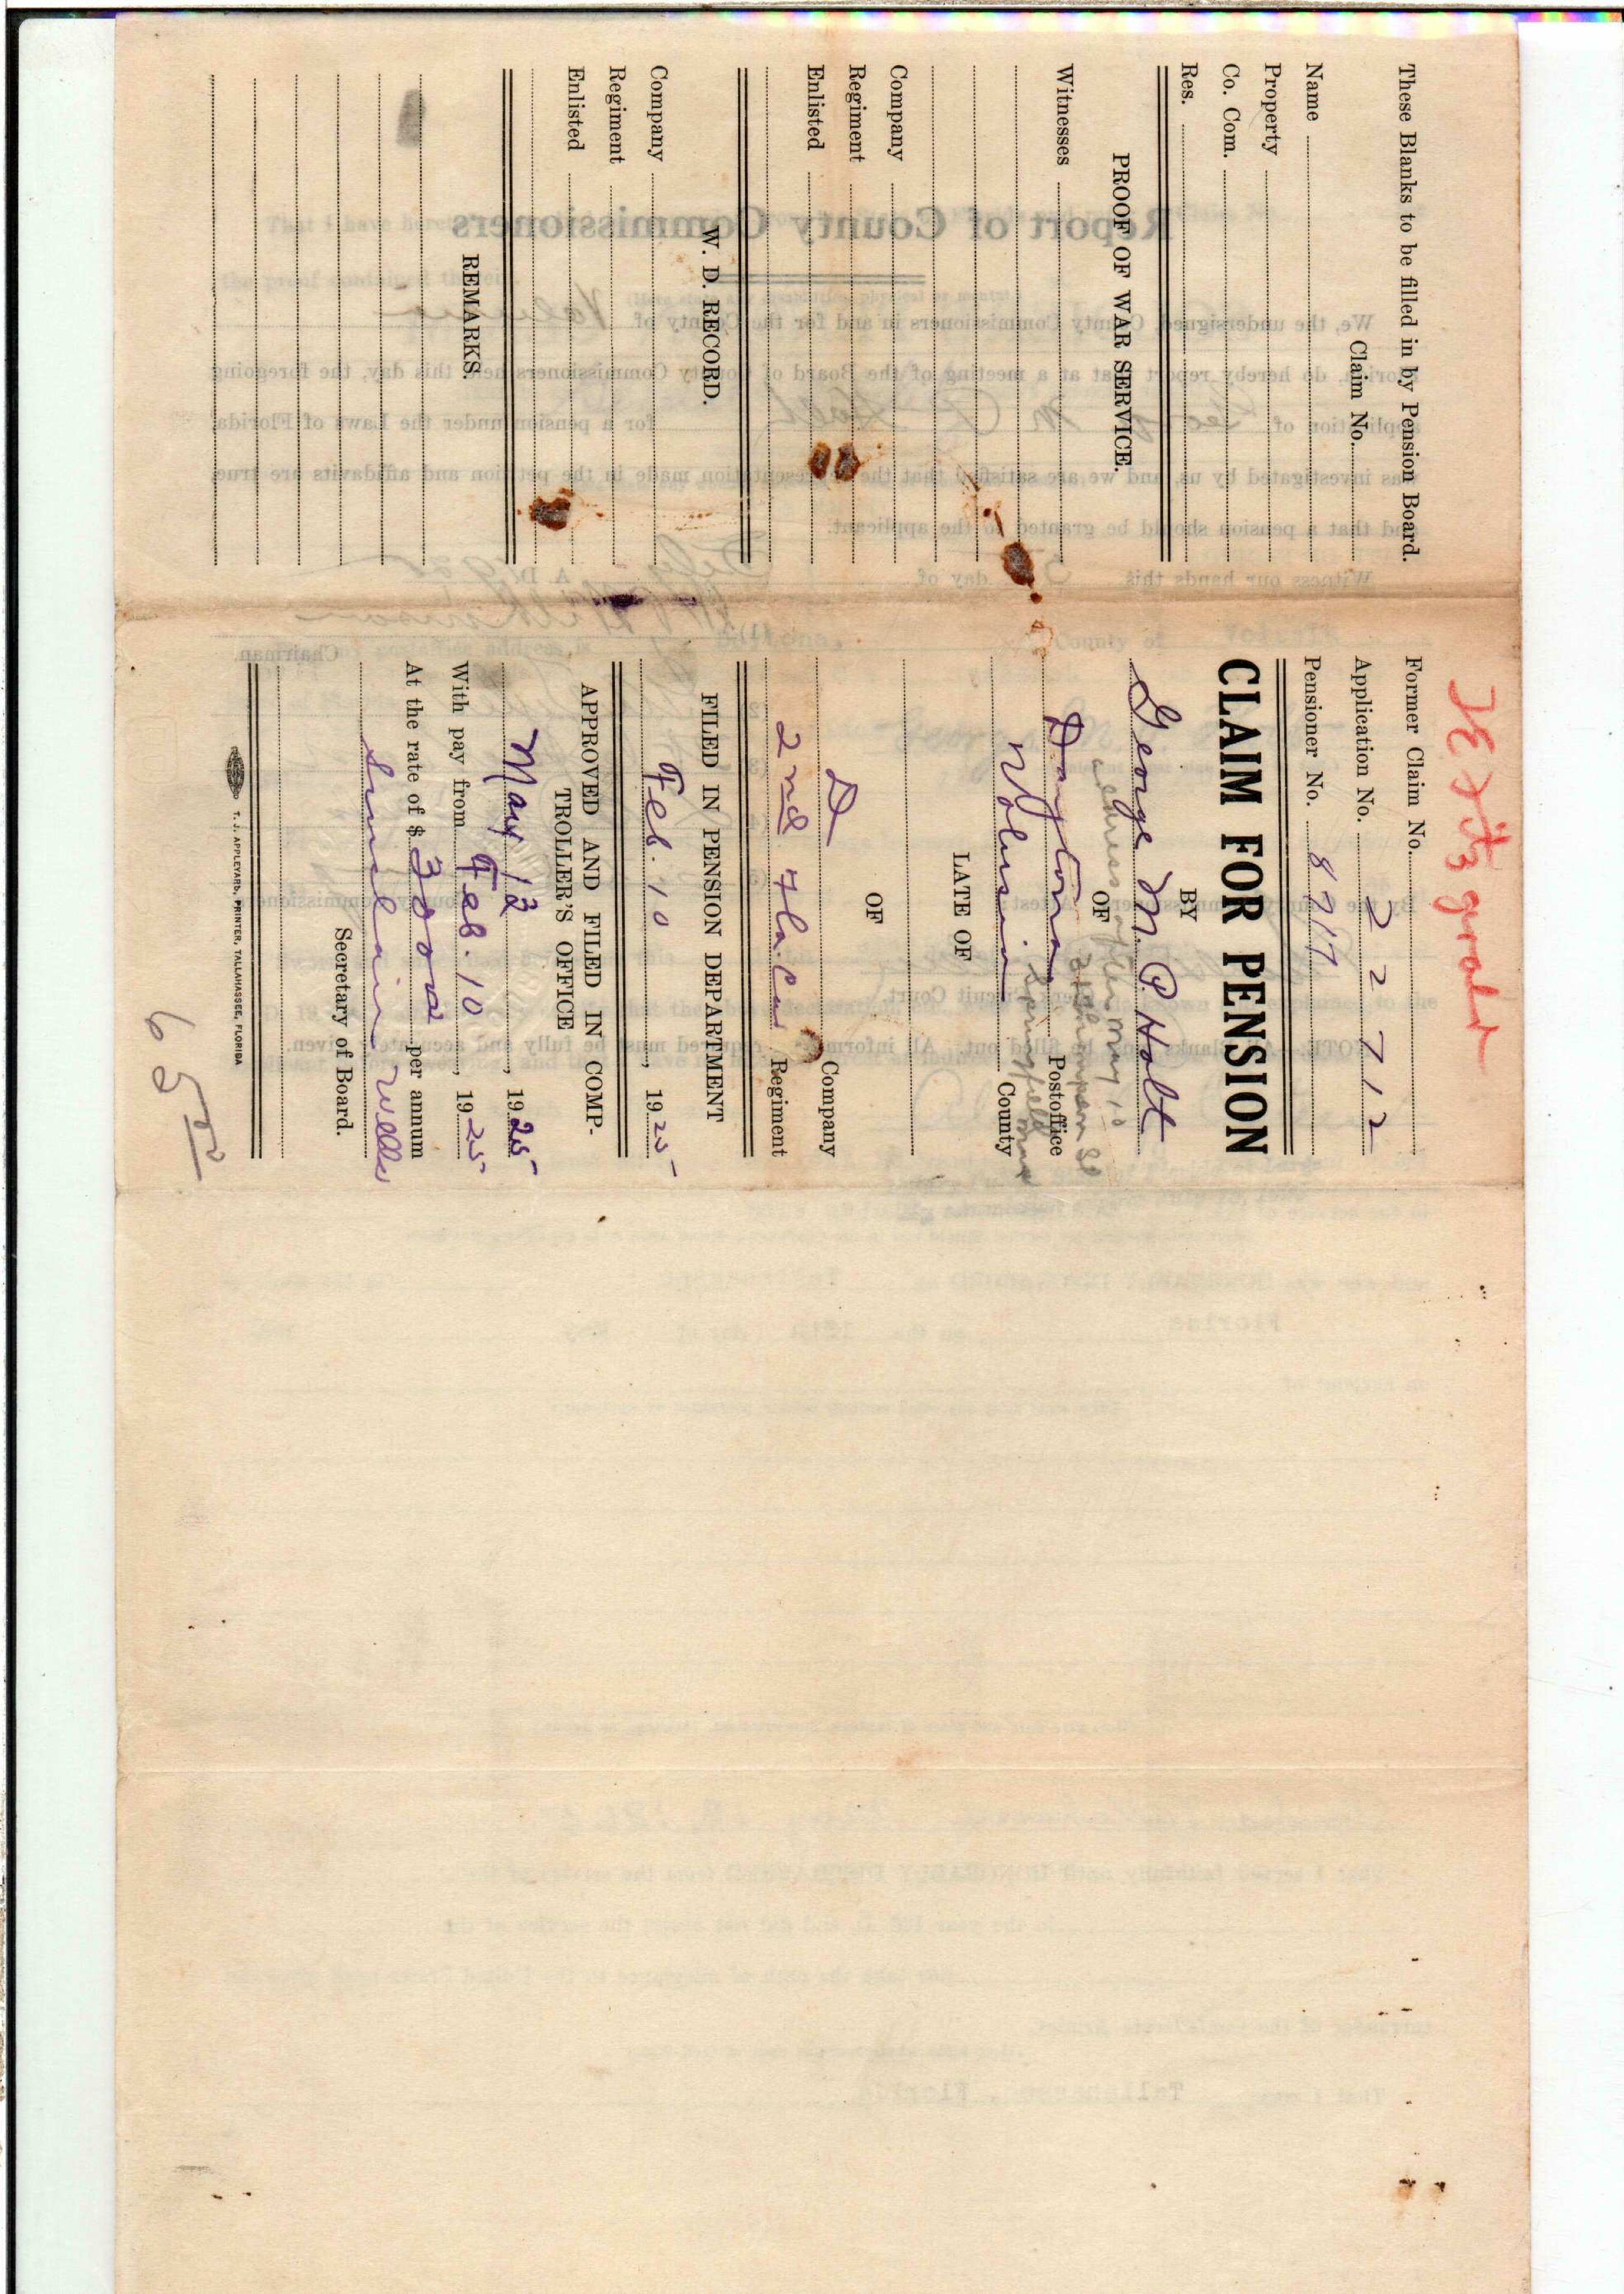 These Blanks to be filled in by Pension Board.
Claim No.
Name
Property
Co. Com.
Res.
PROOF OF WAR SERVICE.
Witnesses
Company
Regiment
Enlisted
W. D. RECORD.
Company
Regiment
Enlisted
REMARKS.
Former Claim No.
Application No. 22712
Pensioner No. 8717
CLAIM FOR PENSION
BY
George M. P. Holt
OF
address after May 10
Daytona Postoffice
Springfield
Volusia County
LATE OF
OF
D Company
2nd Fla. Cav Regiment
FILED IN PENSION DEPARTMENT
Feb. 10, 1925
APPROVED AND FILED IN COMP-
TROLLER'S OFFICE
May 13, 1925
With pay from Feb. 10, 1925
At the rate of $ 300 00 per annum
Sinclair Wells
Secretary of Board.
T. J. APPLEYARD, PRINTER, TALLAHASSEE, FLORIDA